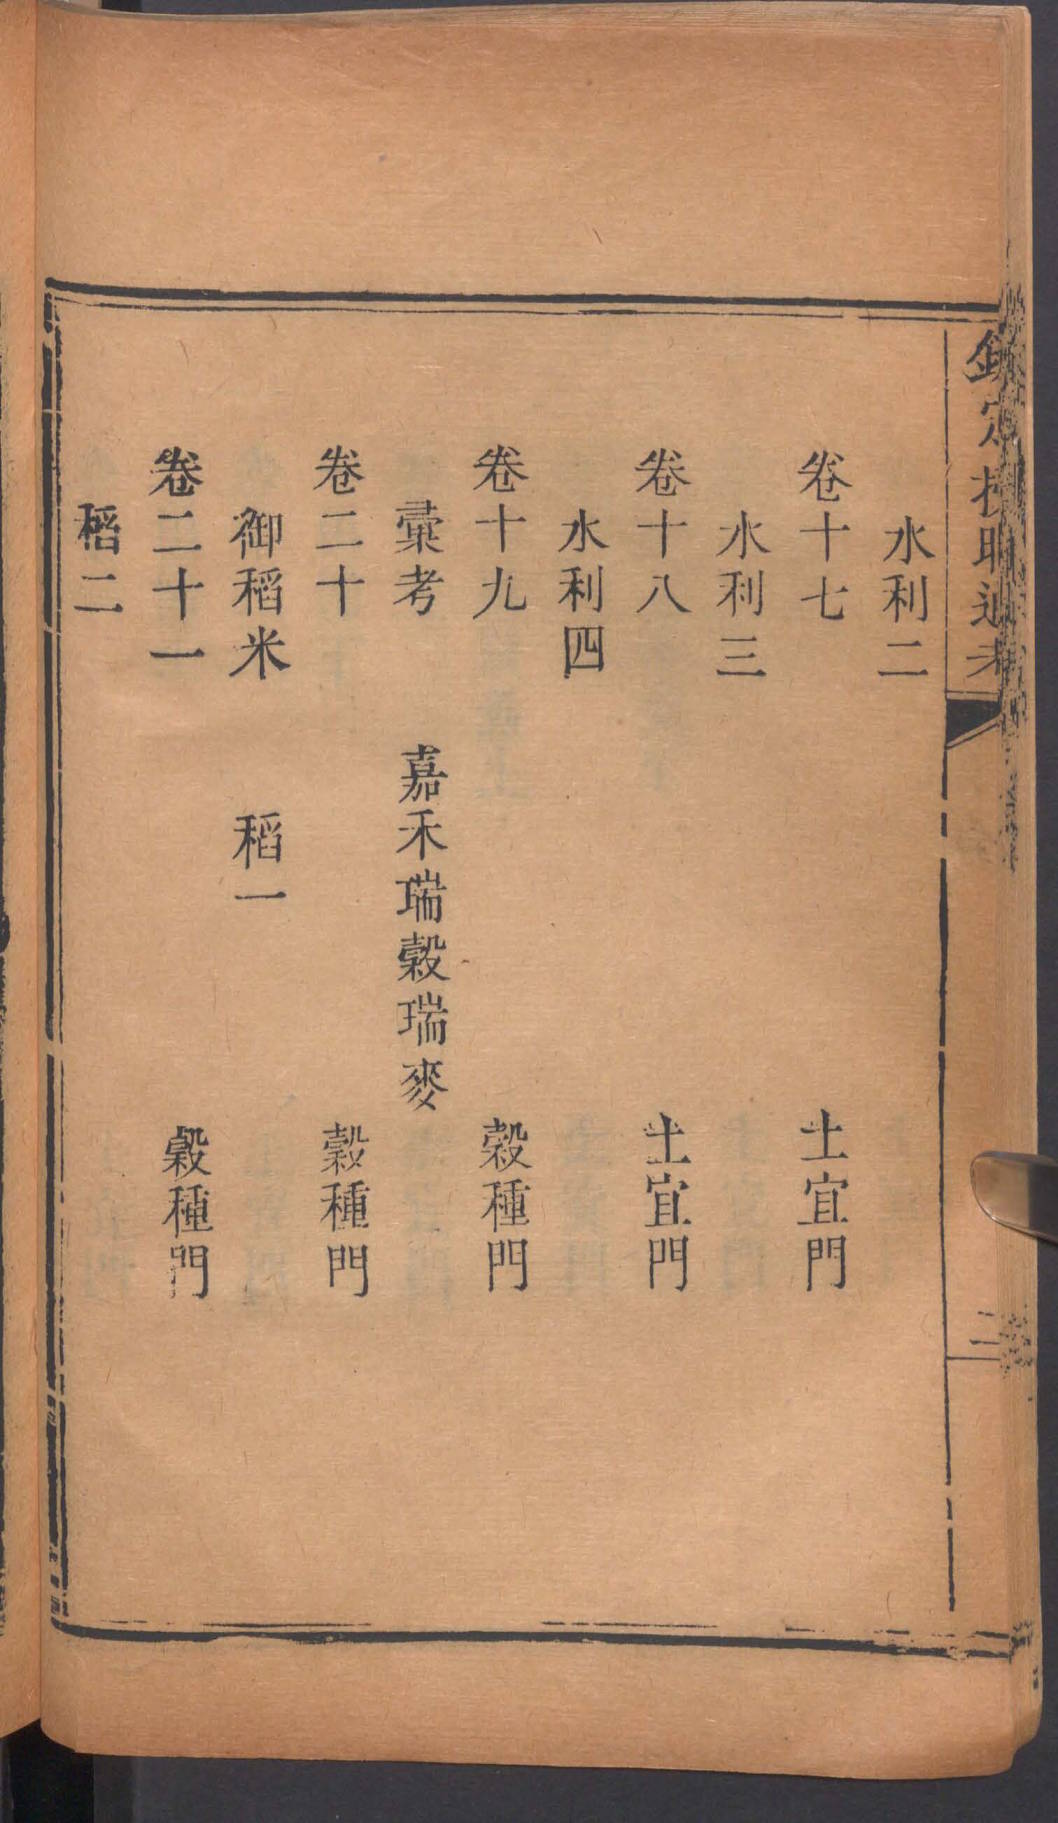 欽定授時通考
水利二
卷十七 土宜門
水利三
卷十八 土宜門
水利四
卷十九 穀種門
彚考 嘉禾瑞穀瑞麥
卷二十 穀種門
御稻米 稻一
卷二十一 穀種門
稻二